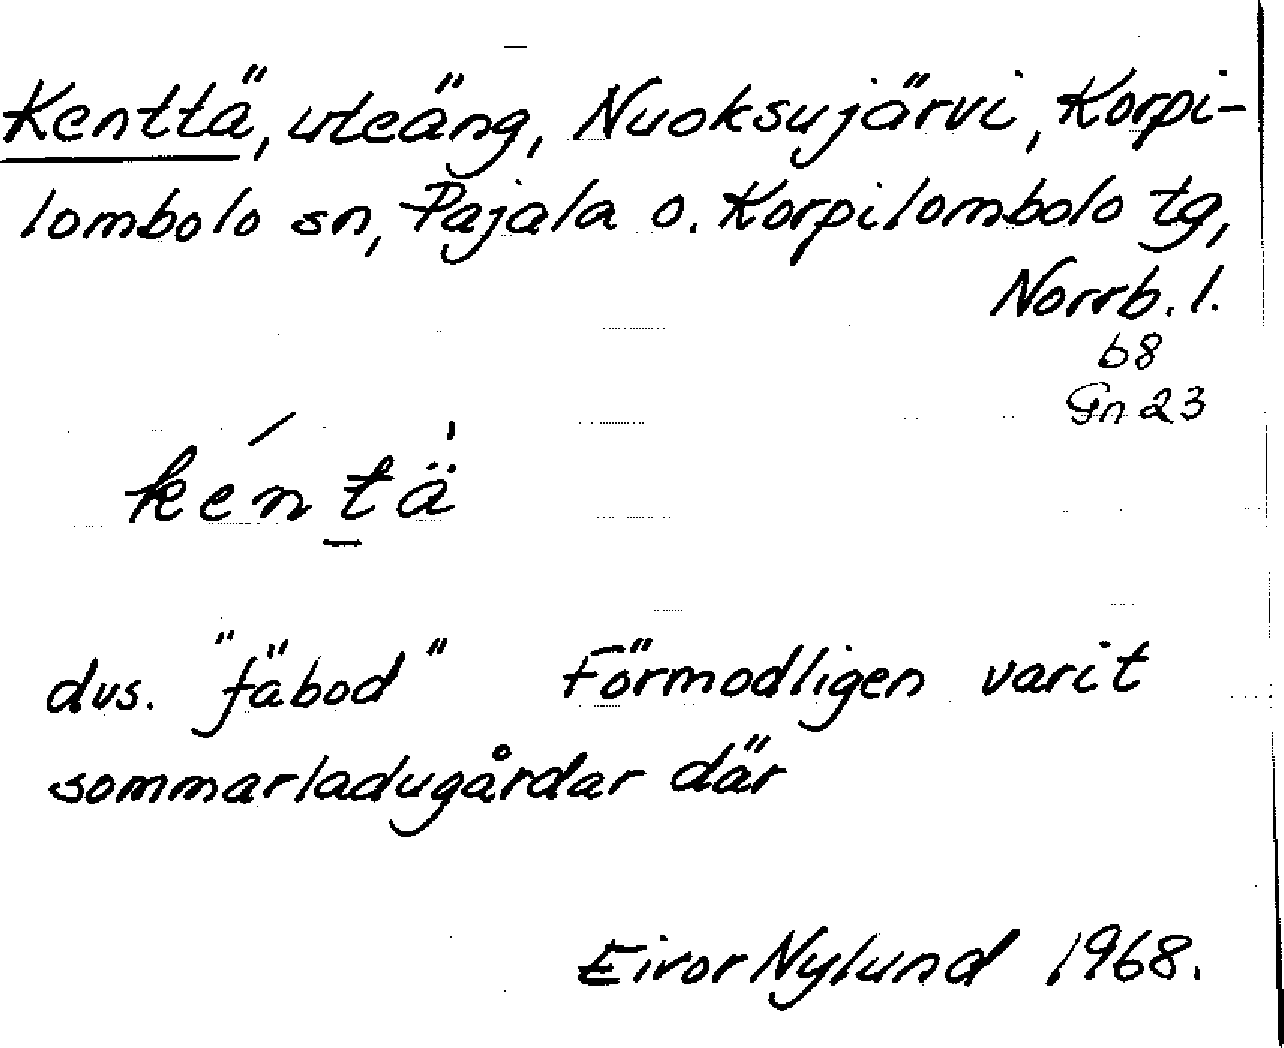 Kenttä, uteäng, Nuoksujärvi, Korpi-
lombolo sn, Pajala o. Korpilombolo tg,
Norrb. l.
b8
Gn 23
ken̄tä
dvs. "fäbod" Förmodligen varit
sommarladugårdar där
Eivor Nylund 1968.